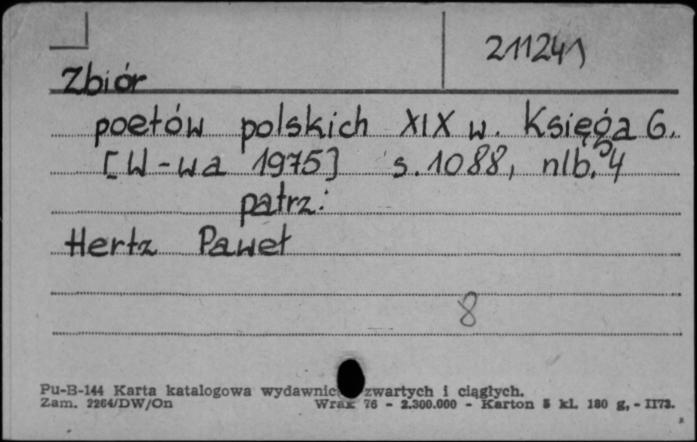 211241
Zbiór
poetów polskich XIX w. Księga 6.
[W-wa 1975] s. 1088, nlb. 4
patrz:
Hertz Paweł
8
Pu-B-144 Karta katalogowa wydawnic zwartych i ciągłych.
Zam. 2264/DW/On Wrak 76 - 2.300.000 - Karton 5 kl. 180 g, - II73.